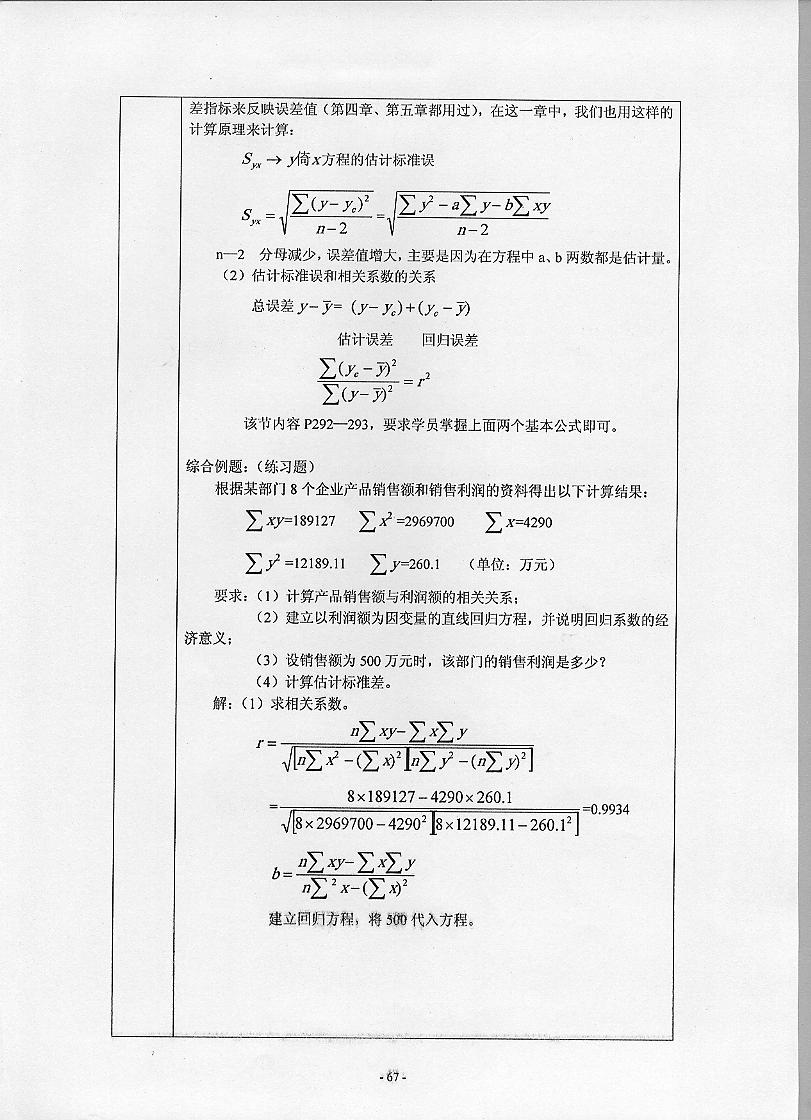 差指标来反映误差值（第四章、第五章都用过），在这一章中，我们也用这样的
计算原理来计算：
S_{yx} → y倚x方程的估计标准误
S_{yx} = \sqrt{\frac{∑(y-y_c)^2}{n-2}} = \sqrt{\frac{∑y^2-a∑y-b∑xy}{n-2}}
n—2 分母减少，误差值增大，主要是因为在方程中 a、b 两数都是估计量。
（2）估计标准误和相关系数的关系
总误差 y-ȳ= (y-y_c)+(y_c-ȳ)
估计误差 回归误差
\frac{∑(y_c-ȳ)^2}{∑(y-ȳ)^2} = r^2
该节内容 P292—293，要求学员掌握上面两个基本公式即可。
综合例题：（练习题）
根据某部门 8 个企业产品销售额和销售利润的资料得出以下计算结果：
∑xy=189127 ∑x^2=2969700 ∑x=4290
∑y^2=12189.11 ∑y=260.1 （单位：万元）
要求：（1）计算产品销售额与利润额的相关关系；
（2）建立以利润额为因变量的直线回归方程，并说明回归系数的经
济意义；
（3）设销售额为 500 万元时，该部门的销售利润是多少？
（4）计算估计标准差。
解：（1）求相关系数。
r = \frac{n∑xy-∑x∑y}{\sqrt{[n∑x^2-(∑x)^2][n∑y^2-(n∑y)^2]}}
= \frac{8×189127-4290×260.1}{\sqrt{[8×2969700-4290^2][8×12189.11-260.1^2]}} =0.9934
b = \frac{n∑xy-∑x∑y}{n∑^2x-(∑x)^2}
建立回归方程，将 500 代入方程。
- 67 -